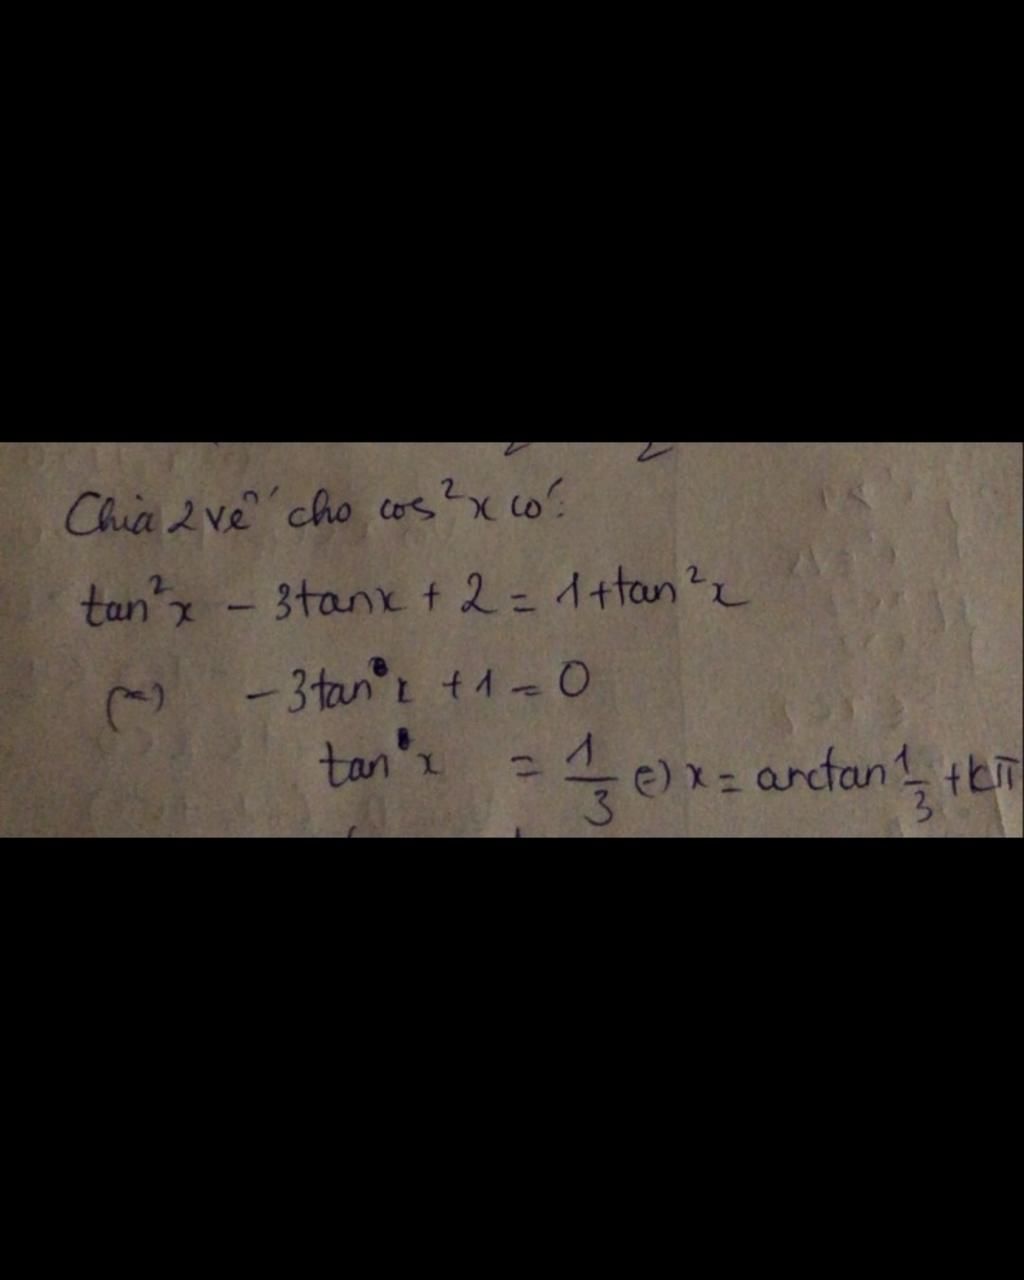 Chia 2 vế cho cos²x có:
tan²x - 3tanx + 2 = 1+tan²x
(=) -3tan x + 1 = 0
tan x = 1/3 (=) x = arctan 1/3 + kπ